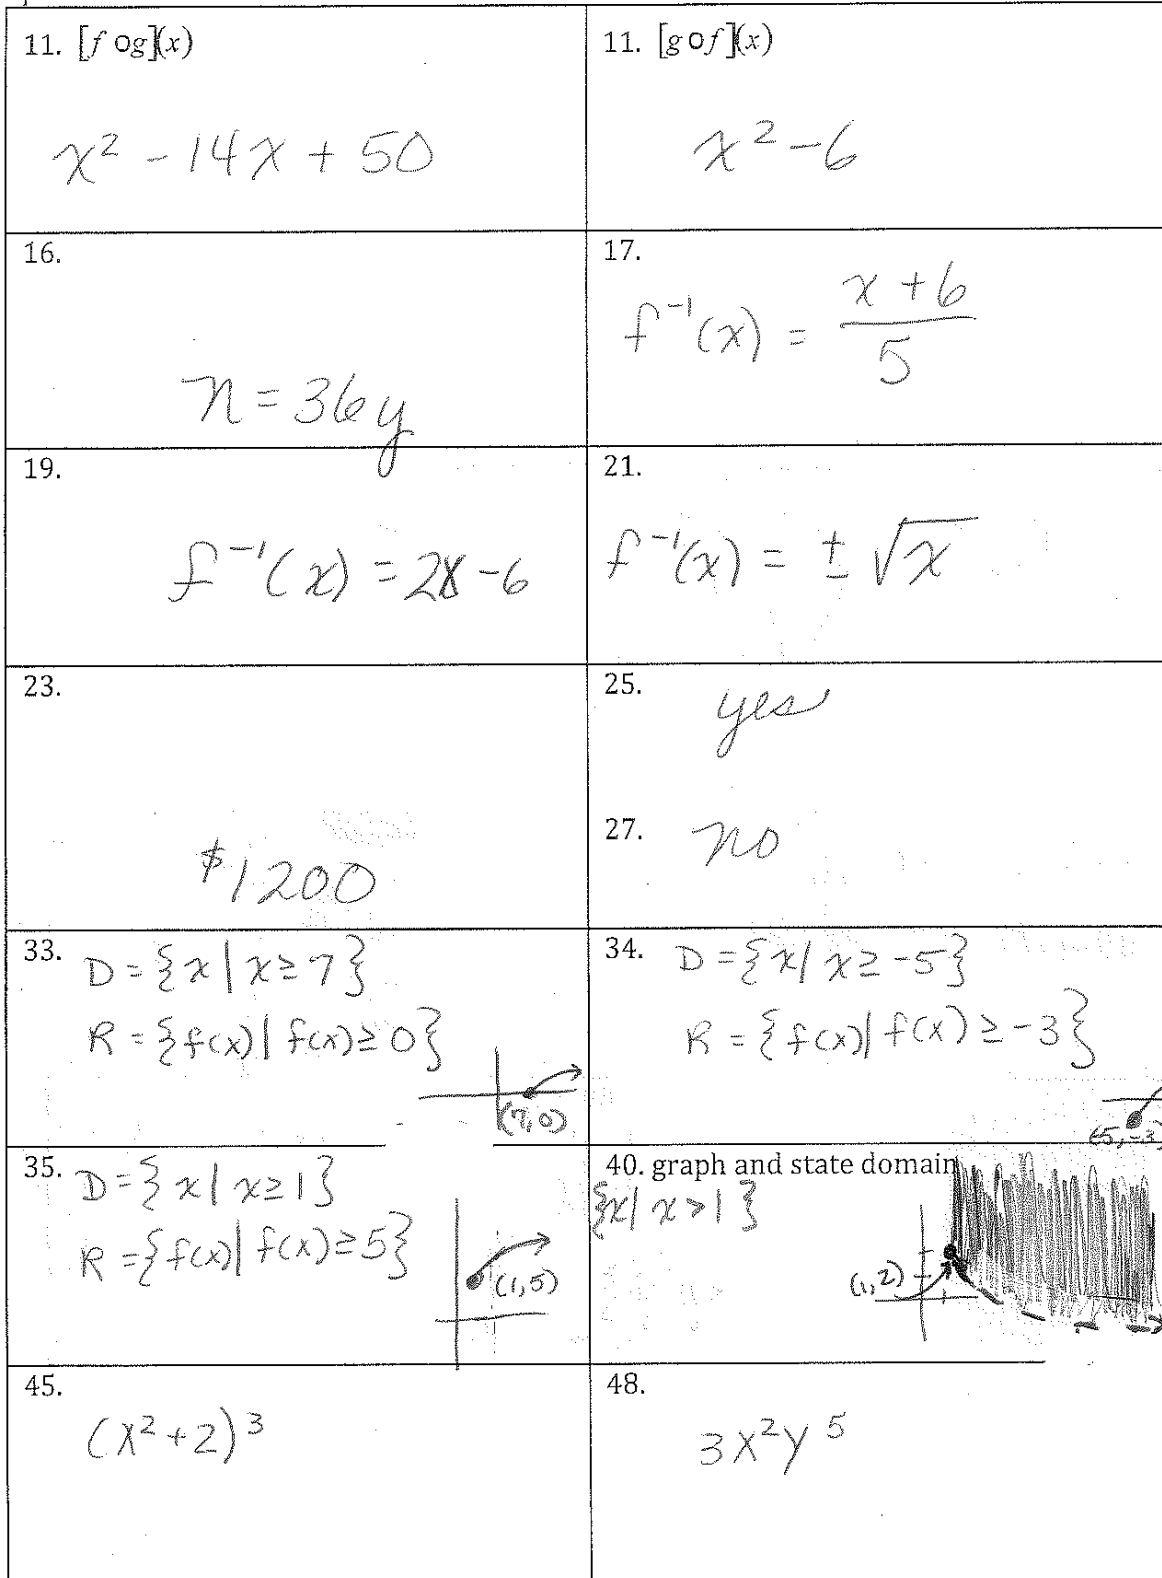 11. [f o g](x)
x² - 14x + 50
11. [g o f](x)
x² - 6
16.
n = 36y
17.
f⁻¹(x) = (x + 6)/5
19.
f⁻¹(x) = 2x - 6
21.
f⁻¹(x) = ± √x
23.
$1200
25. yes
27. no
33. D = {x | x ≥ 7}
R = {f(x) | f(x) ≥ 0}
(7,0)
34. D = {x | x ≥ -5}
R = {f(x) | f(x) ≥ -3}
(5,-3)
35. D = {x | x ≥ 1}
R = {f(x) | f(x) ≥ 5}
(1,5)
40. graph and state domain
{x | x > 1}
(1,2)
45.
(x² + 2)³
48.
3x²y⁵